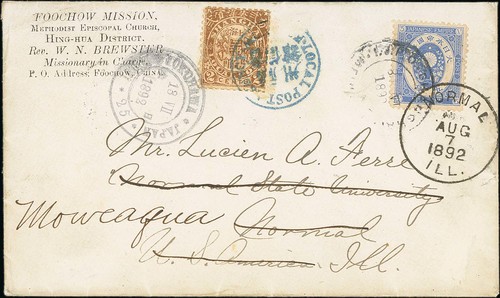 FOOCHOW MISSION,
METHODIST EPISCOPAL CHURCH,
HING-HUA DISTRICT.
Rev. W. N. BREWSTER
Missionary in Charge.
P. O. Address: FOOCHOW, CHINA.
SHANGHAI
LOCAL POST
YOKOHAMA
18 VII
1892
JAPAN
25
NORMAL
AUG
7
1892
ILL.
Mr. Lucien A. Ferre
Normal State University
Moweaqua Normal
U. S. America Ill.